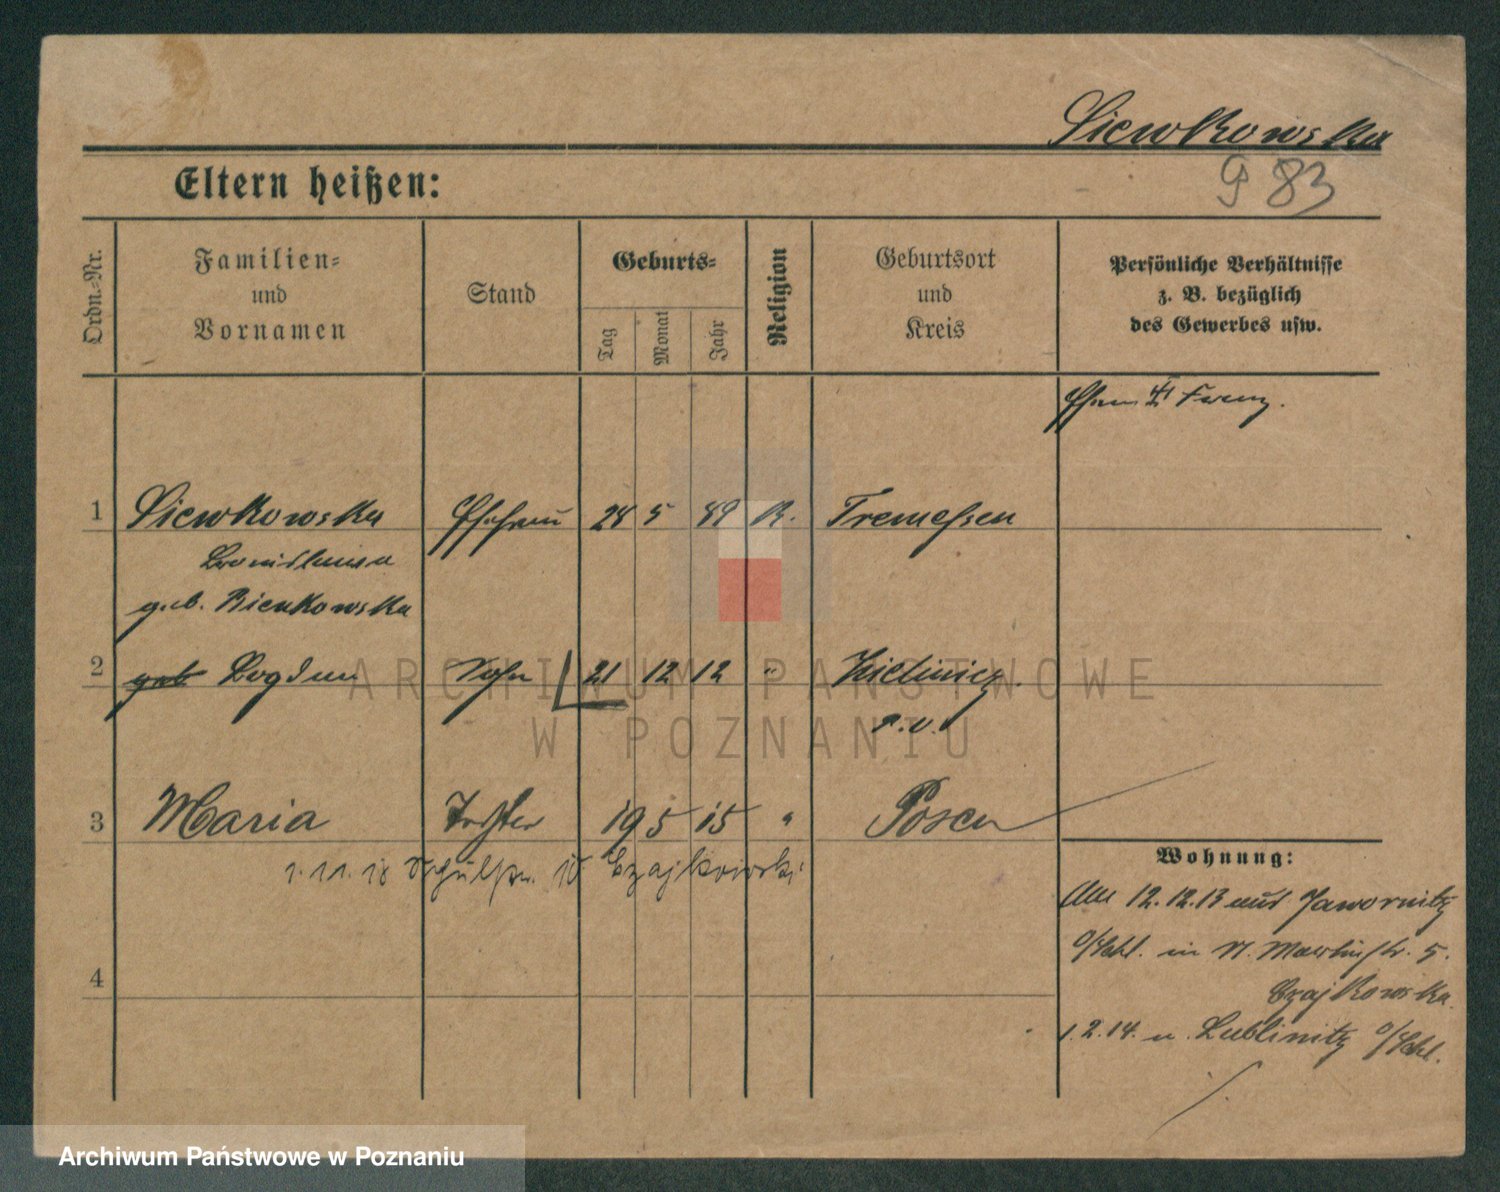 Siewkowska
P 83
Eltern heißen:
Ordn.-Nr.
Familien-
und
Vornamen
Stand
Geburts-
Tag
Monat
Jahr
Religion
Geburtsort
und
Kreis
Persönliche Verhältnisse
z. B. bezüglich
des Gewerbes usw.
Franz.
1 Siewkowska Ehefrau 24 5 89 K. Tremessen
Bronislawa
geb. Bienkowska
2 geb Bogdan Sohn 21 12 12 "
3 Maria Tochter 19 5 15 " Posen
1.11.18 IV Czajkowski
4
Wohnung:
Am 12.12.13 aus Jawornitz
O/Schl. in St. Martinstr. 5.
Czajkowska.
1.2.14. n. Lublinitz O/Schl.
ARCHIWUM PAŃSTWOWE
W POZNANIU
Archiwum Państwowe w Poznaniu